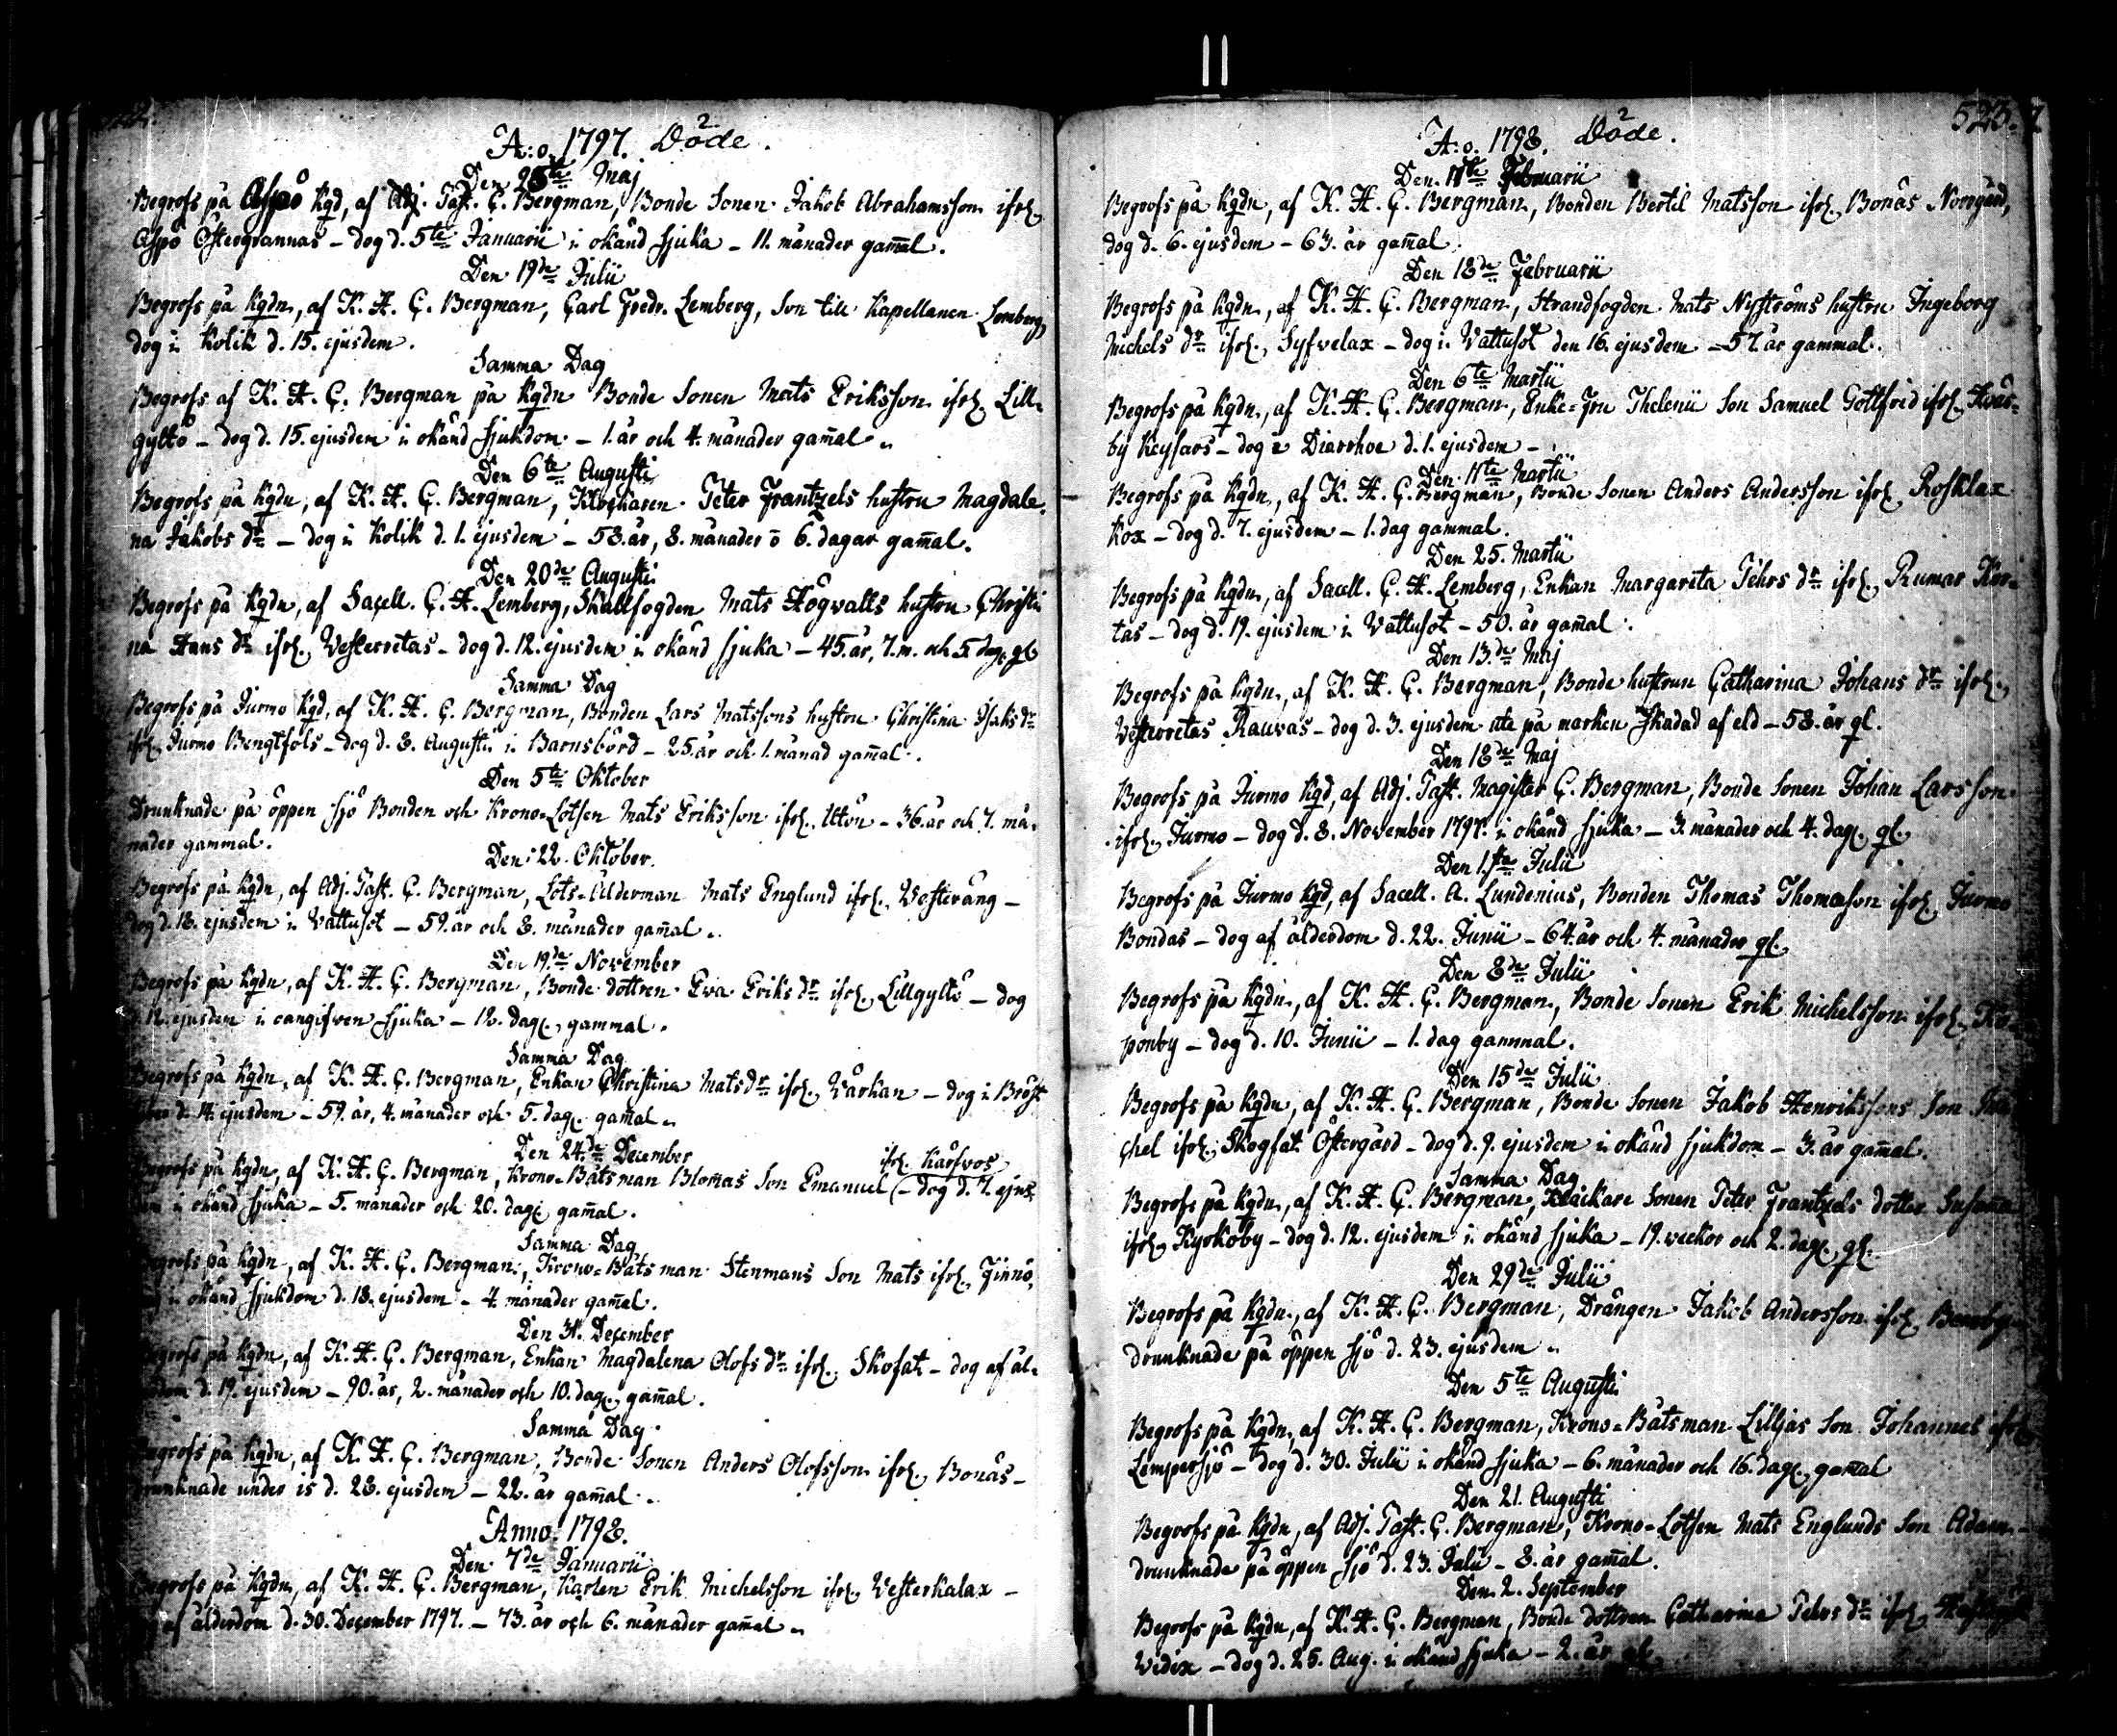 A:o. 1797. Döde.
2
Den 28te Maj
Begrofs på Aspö Kgd, af Adj. Past. C. Bergman, Bonde Sonen Jakob Abrahamsson ifrå
Aspö Östergrannas – dog d. 5te Januarii i okänd sjuka – 11. månader gam̄al.
Den 19de Julii
Begrofs på Kgdn, af K. H. C. Bergman, Carl Fredr. Lemberg, Son till Kapellanen Lemberg,
dog i Kolik d. 15. ejusdem.
Samma Dag
Begrofs af K. H. C. Bergman på Kgdn Bonde Sonen Mats Eriksson ifrå Lill-
gyltö – dog d. 15. ejusdem i okänd sjukdom – 1. år och 4. månader gam̄al.
Den 6te Augusti
Begrofs på Kgdn, af K. H. C. Bergman, Klockaren Peter Frantzels hustru Magdale-
na Jakobs dr – dog i Kolik d. 1. ejusdem – 58. år, 8. månader o 6. dagar gam̄al.
Den 20de Augusti
Begrofs på Kgdn, af Sacell. C. H. Lemberg, Skallfogden Mats Högvalls hustru Christi
na Hans dr ifrå Vesterretas – dog d. 12. ejusdem i okänd sjuka – 45. år, 7. m. och 5 dag. gl
Samma Dag
Begrofs på Jurmo Kgd, af K. H. C. Bergman, Bonden Lars Matssons hustru Christina Isaks dr
ifrå Jurmo Bengtsols – dog d. 8. Augusti i Barnsbörd – 25. år och 1. månad gam̄al.
Den 5te Oktober
Drunknade på öppen sjö Bonden och Krono-Lotsen Mats Eriksson ifrå Utön – 36. år och 7. må-
nader gammal.
Den 22. Oktober.
Begrofs på Kgdn, af Adj. Past. C. Bergman, Lots-Ålderman Mats Englund ifrå Vesteräng –
dog d. 18. ejusdem i Vattusot – 59. år och 8. månader gam̄al.
Den 19de November
Begrofs på Kgdn, af K. H. C. Bergman, Bonde dottren Eva Eriks dr ifrå Lillgyltö – dog
d. 12. ejusdem i oangifven sjuka – 12. dag. gammal.
Samma Dag
Begrofs på Kgdn, af K. H. C. Bergman, Enkan Christina Matsdr ifrå Wårkan – dog i Bröst
d. 14. ejusdem – 59. år, 4. månader och 5. dag. gam̄al.
Den 24de December
ifrå Karsvos
Begrofs på Kgdn, af K. H. C. Bergman, Krono-Båtsman Blom̄as Son Emanuel – dog d. 7. ejus-
dem i okänd sjuka – 5. månader och 20. dag. gam̄al.
Samma Dag
Begrofs på Kgdn, af K. H. C. Bergman, Krono-Båtsman Stenmans Son Mats ifrå Finnö,
i okänd sjukdom d. 18. ejusdem – 4. månader gam̄al.
Den 31. December
Begrofs på Kgdn, af K. H. C. Bergman, Enkan Magdalena Olofs dr ifrå Skofat – dog af ål-
derdom d. 19. ejusdem – 90. år, 2. månader och 10. dag. gam̄al.
Samma Dag
Begrofs på Kgdn, af K. H. C. Bergman, Bonde Sonen Anders Olofsson ifrå Bonäs –
drunknade under is d. 28. ejusdem – 22. år gam̄al.
Anno 1798.
Den 7de Januarii
Begrofs på Kgdn, af K. H. C. Bergman, Karlen Erik Michelsson ifrå Vesterkalax –
af ålderdom d. 30. December 1797. – 73. år och 6. månader gam̄al.
523.
A:o. 1798. Döde.
2
Den 11te Februarii
Begrofs på Kgdn, af K. H. C. Bergman, Bonden Bertil Matsson ifrå Bonäs Norrgård,
dog d. 6. ejusdem – 63. år gam̄al.
Den 18de Februarii
Begrofs på Kgdn, af K. H. C. Bergman, Strandfogden Mats Nyströms hustru Ingeborg
Michels dr ifrå Syfvelax – dog i Vattusot den 16. ejusdem – 57. år gammal.
Den 6te Martii
Begrofs på Kgdn, af K. H. C. Bergman, Enke-Fru Thelenii Son Samuel Gottfrid ifrå Hväs-
by Keysars – dog i Diarrhoe d. 1. ejusdem –
Den 11te Martii
Begrofs på Kgdn, af K. H. C. Bergman, Bonde Sonen Anders Andersson ifrå Rosklax
Kox – dog d. 7. ejusdem – 1. dag gammal.
Den 25. Martii
Begrofs på Kgdn, af Sacell. C. H. Lemberg, Enkan Margareta Pehrs dr ifrå Rumar Kor-
tas – dog d. 19. ejusdem i Vattusot – 50. år gam̄al.
Den 13de Maj
Begrofs på Kgdn, af K. H. C. Bergman, Bonde hustrun Catharina Johans dr ifrå
Vesterretas Rauvas – dog d. 3. ejusdem ute på marken skadad af eld – 58. år gl.
Den 18de Maj
Begrofs på Jurmo Kgd, af Adj. Past. Magister C. Bergman, Bonde Sonen Johan Larsson
ifrå Jurmo – dog d. 8. November 1797. i okänd sjuka – 3. månader och 4. dag. gl.
Den 1sta Julii
Begrofs på Jurmo Kgd, af Sacell. A. Lundenius, Bonden Thomas Thomasson ifrå Jurmo
Bondas – dog af ålderdom d. 22. Junii – 64. år och 4. månader gl.
Den 8de Julii
Begrofs på Kgdn, af K. H. C. Bergman, Bonde Sonen Erik Michelsson ifrå Ko-
ponby – dog d. 10. Junii – 1. dag gammal.
Den 15de Julii
Begrofs på Kgdn, af K. H. C. Bergman, Bonde Sonen Jakob Henrikssons Son Mi-
chel ifrå Skogfat Östergård – dog d. 9. ejusdem i okänd sjukdom – 3. år gam̄al.
Samma Dag
Begrofs på Kgdn, af K. H. C. Bergman, Klåckare Sonen Peter Frantzels dotter Susanna
ifrå Kyrkoby – dog d. 12. ejusdem i okänd sjuka – 19. veckor och 2. dag. gl.
Den 29de Julii
Begrofs på Kgdn, af K. H. C. Bergman, Drängen Jakob Andersson ifrå
drunknade på öppen sjö d. 23. ejusdem.
Den 5te Augusti
Begrofs på Kgdn, af K. H. C. Bergman, Krono-Båtsman Lilljas Son Johannes ifrå
Lempersjö – dog d. 30. Julii i okänd sjuka – 6. månader och 16. dag. gam̄al
Den 21. Augusti
Begrofs på Kgdn, af Adj. Past. C. Bergman, Krono-Lotsen Mats Englunds Son Adam –
drunknade på öppen sjö d. 23. Julii – 8. år gam̄al.
Den 2. September
Begrofs på Kgdn, af K. H. C. Bergman, Bonde dottren Catharina Pehrs dr ifrå
Widix – dog d. 25. Aug. i okänd sjuka – 2. år gl.